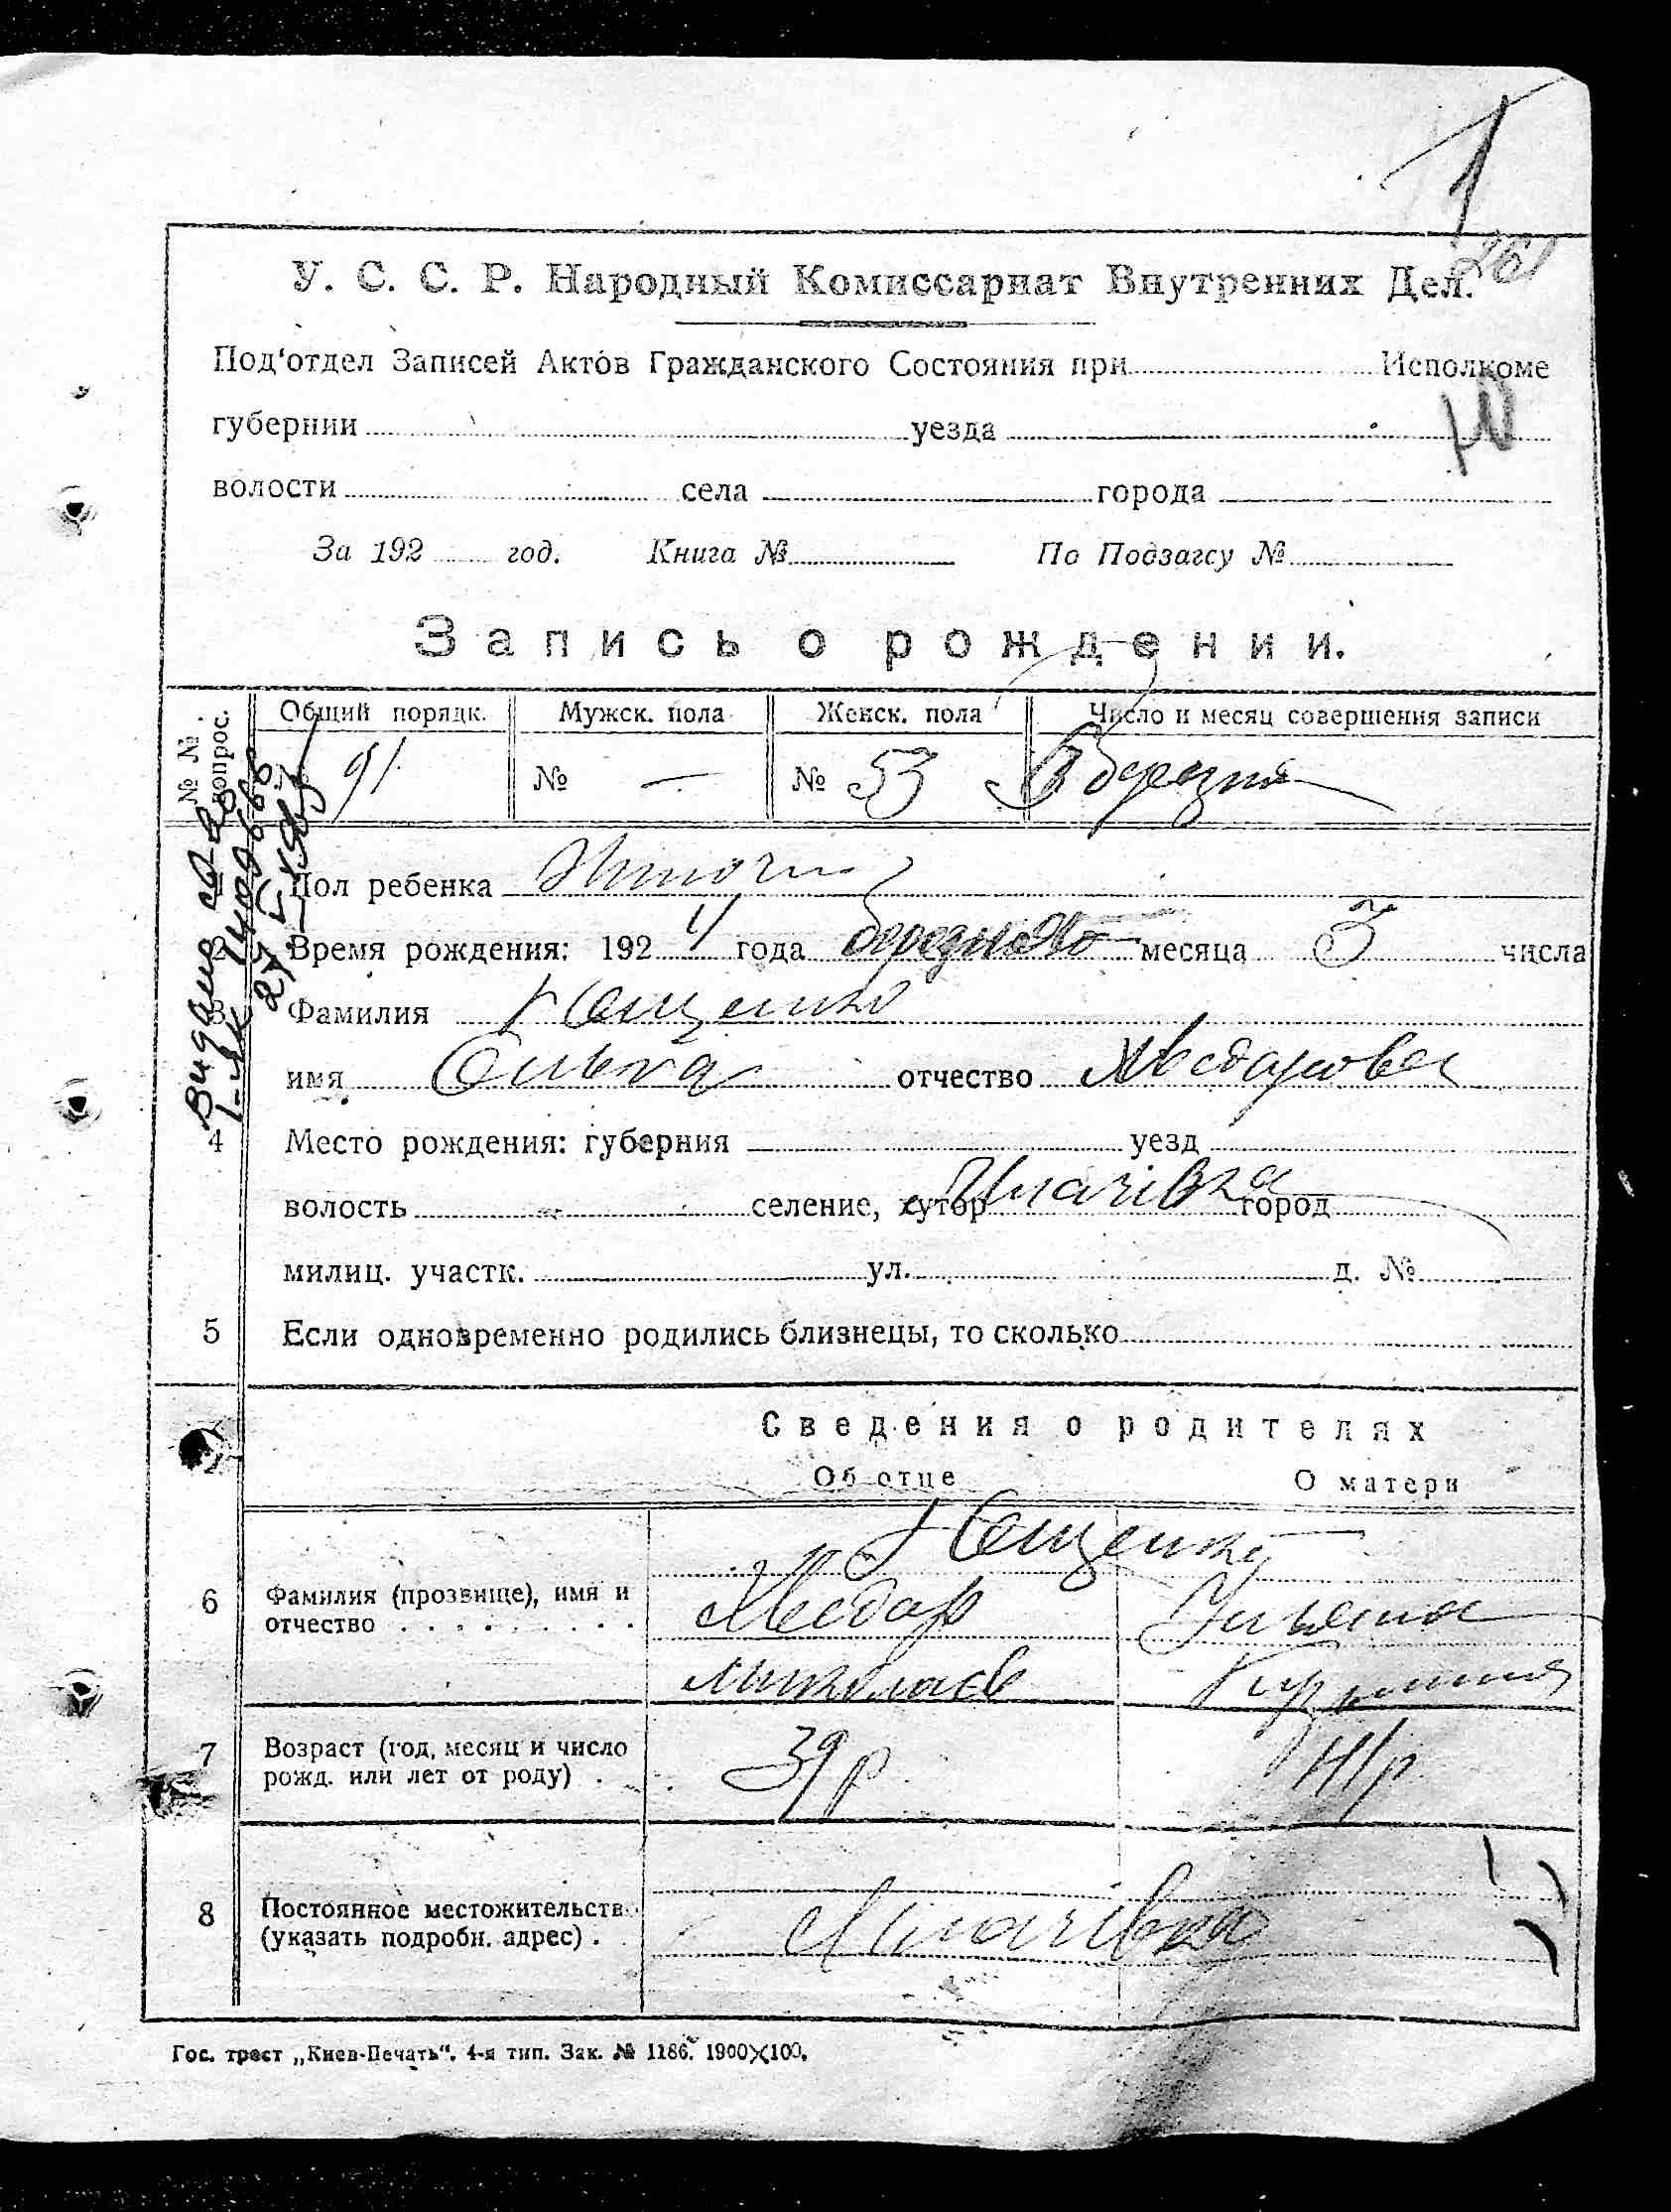 1
261
У. С. С. Р. Народный Комиссариат Внутренних Дел.
Под'отдел Записей Актов Гражданского Состояния при Исполкоме
10
губернии уезда
волости села города
За 192 год. Книга № По Подзагсу №
Запись о рождении.
№ № вопрос. Общий порядк. Мужск. пола Женск. пола Число и месяц совершения записи
91 № — № 53 березня
Видано
Пол ребенка жіноча
2 Время рождения: 1924 года березня месяца 3 числа
3 Фамилия Ющенко
имя Ольга отчество
4 Место рождения: губерния уезд
волость селение, хутор город
милиц. участк. ул. д. №
5 Если одновременно родились близнецы, то сколько
Сведения о родителях
Об отце О матери
Ющенко
6 Фамилия (прозвище), имя и отчество Уляна
7 Возраст (год, месяц и число рожд. или лет от роду) 39 р 41 р
8 Постоянное местожительство (указать подробн. адрес)
Гос. трест „Киев-Печать". 4-я тип. Зак. № 1186. 1900×100.